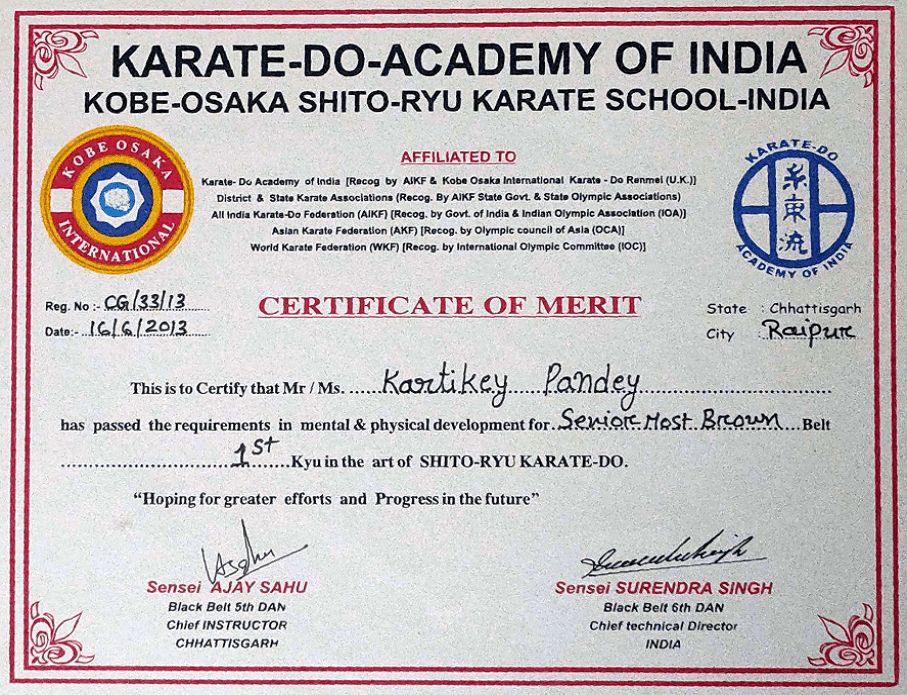 KARATE-DO-ACADEMY OF INDIA
KOBE-OSAKA SHITO-RYU KARATE SCHOOL-INDIA
KOBE OSAKA
INTERNATIONAL
AFFILIATED TO
Karate- Do Academy of India [Recog by AIKF & Kobe Osaka International Karate - Do Renmei (U.K.)]
District & State Karate Associations (Recog. By AIKF State Govt. & State Olympic Associations)
All India Karate-Do Federation (AIKF) [Recog. by Govt. of India & Indian Olympic Association (IOA)]
Asian Karate Federation (AKF) [Recog. by Olympic council of Asia (OCA)]
World Karate Federation (WKF) [Recog. by International Olympic Committee (IOC)]
KARATE-DO
糸
東
流
ACADEMY OF INDIA
Reg. No :- CG/33/13
Date:- 16/6/2013
CERTIFICATE OF MERIT
State : Chhattisgarh
City : Raipur
This is to Certify that Mr / Ms. Kartikey Pandey
has passed the requirements in mental & physical development for Senior Most Brown Belt
1st Kyu in the art of SHITO-RYU KARATE-DO.
“Hoping for greater efforts and Progress in the future”
Sensei AJAY SAHU
Black Belt 5th DAN
Chief INSTRUCTOR
CHHATTISGARH
Sensei SURENDRA SINGH
Black Belt 6th DAN
Chief technical Director
INDIA